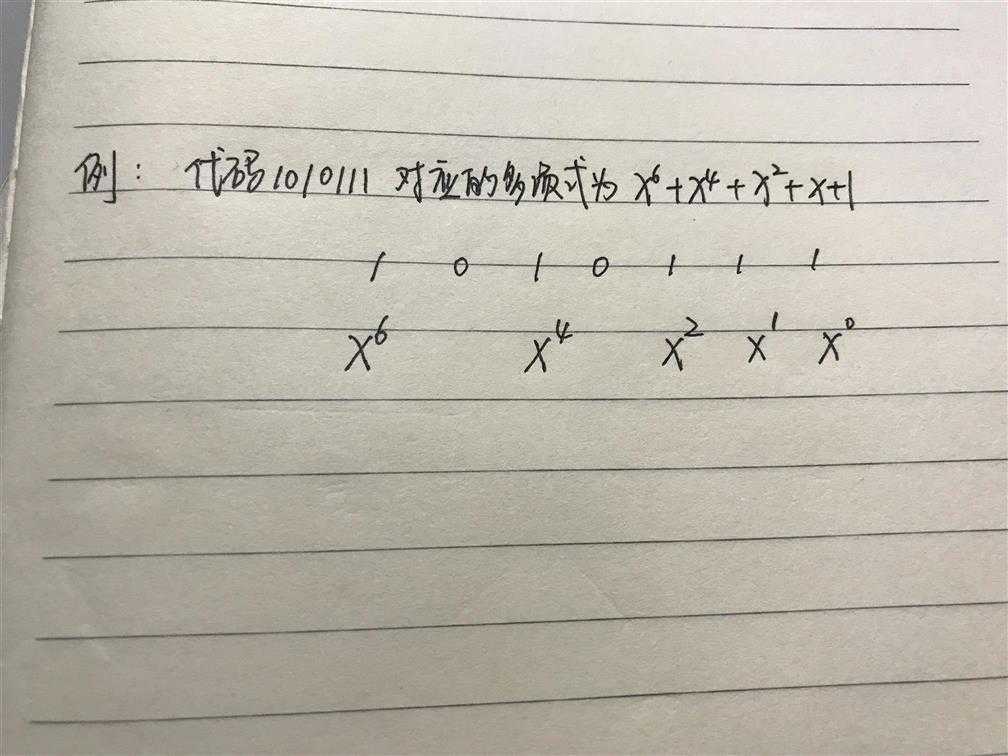 例: 代码1010111 对应的多项式为 x⁶+x⁴+x²+x+1
1 0 1 0 1 1 1
x⁶ x⁴ x² x¹ x⁰